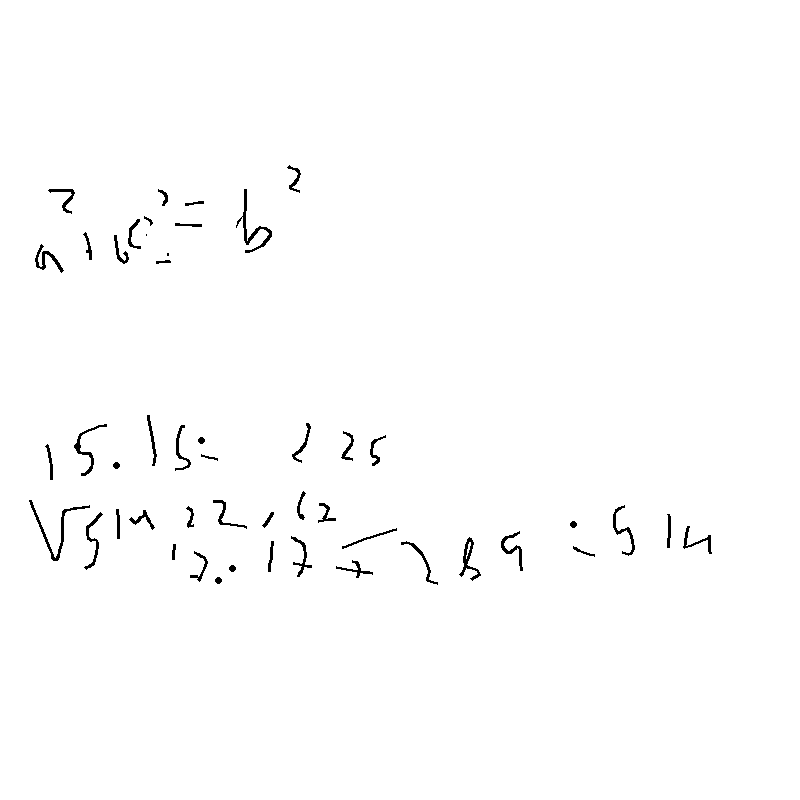 a² + c² = b²
15 . 15 = 225
√514 22,62
17 . 17 = 289 = 514